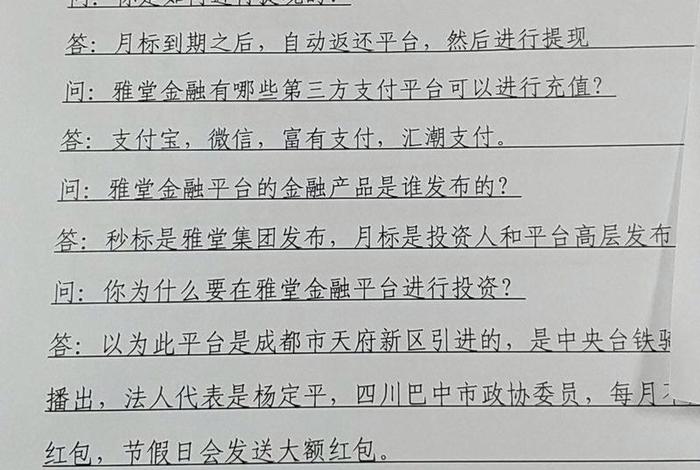 答：月标到期之后，自动返还平台，然后进行提现
问：雅堂金融有哪些第三方支付平台可以进行充值？
答：支付宝，微信，富有支付，汇潮支付。
问：雅堂金融平台的金融产品是谁发布的？
答：秒标是雅堂集团发布，月标是投资人和平台高层发布
问：你为什么要在雅堂金融平台进行投资？
答：以为此平台是成都市天府新区引进的，是中央台铁
播出，法人代表是杨定平，四川巴中市政协委员，每月
红包，节假日会发送大额红包。